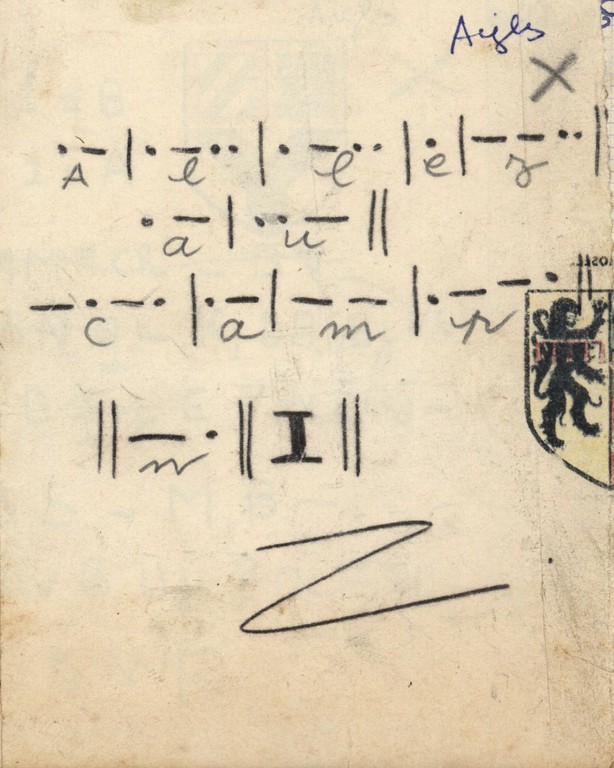 Aigles
X
.- | .-.. | .-.. | . | --.. ||
A l l e z
.- | ..- ||
a u
-.-. | .- | -- | .--. ||
c a m p
|| -. || I ||
n